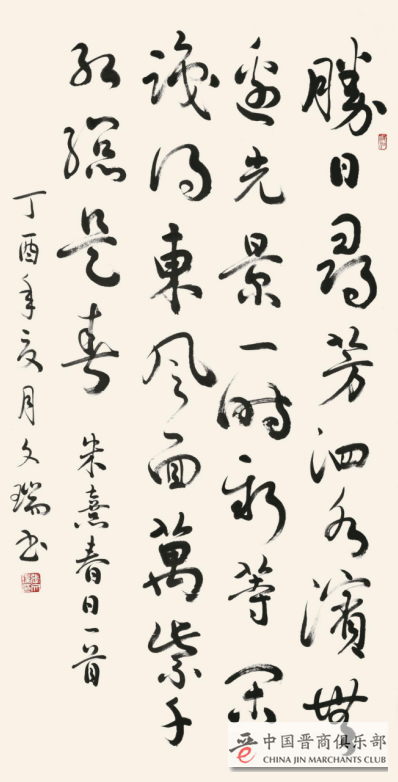 勝日尋芳泗水濱無
邊光景一時新等閑
識得東風面萬紫千
紅總是春 朱熹春日一首
丁酉年夏月文瑞书
中国晋商俱乐部
CHINA JIN MARCHANTS CLUB